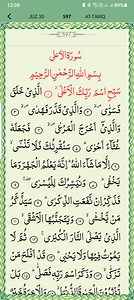 12:09
JUZ 30 597 AT-TARIQ
597
سُورَةُ الْأَعْلَى
بِسْمِ اللَّهِ الرَّحْمَٰنِ الرَّحِيمِ
سَبِّحِ اسْمَ رَبِّكَ الْأَعْلَى ١ الَّذِي خَلَقَ
فَسَوَّى ٢ وَالَّذِي قَدَّرَ فَهَدَى
٣ وَالَّذِي أَخْرَجَ الْمَرْعَى ٤ فَجَعَلَهُ
غُثَاءً أَحْوَى ٥ سَنُقْرِئُكَ فَلَا تَنْسَى ٦
إِلَّا مَا شَاءَ اللَّهُ إِنَّهُ يَعْلَمُ الْجَهْرَ وَمَا
يَخْفَى ٧ وَنُيَسِّرُكَ لِلْيُسْرَى ٨
فَذَكِّرْ إِنْ نَفَعَتِ الذِّكْرَى ٩ سَيَذَّكَّرُ مَنْ
يَخْشَى ١٠ وَيَتَجَنَّبُهَا الْأَشْقَى ١١
الَّذِي يَصْلَى النَّارَ الْكُبْرَى ١٢ ثُمَّ لَا
يَمُوتُ فِيهَا وَلَا يَحْيَى ١٣ قَدْ أَفْلَحَ مَنْ
تَزَكَّى ١٤ وَذَكَرَ اسْمَ رَبِّهِ فَصَلَّى ١٥